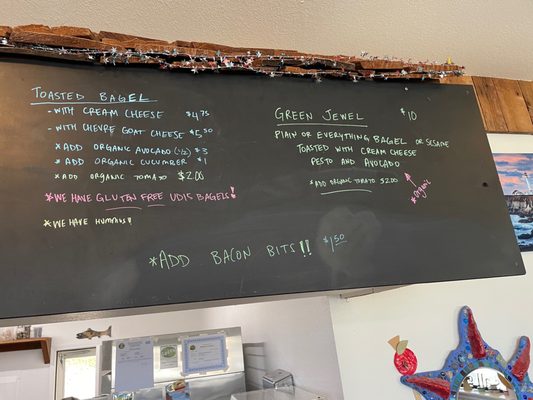 TOASTED BAGEL
- WITH CREAM CHEESE $4.75
- WITH CHEVRE GOAT CHEESE $5.50
*ADD ORGANIC AVOCADO (1/2) $3
*ADD ORGANIC CUCUMBER $1
*ADD ORGANIC TOMATO $2.00
*WE HAVE GLUTEN FREE UDIS BAGELS!
*WE HAVE HUMMUS!!
GREEN JEWEL $10
PLAIN OR EVERYTHING BAGEL OR SESAME
TOASTED WITH CREAM CHEESE
PESTO AND AVOCADO
*ADD ORGANIC TOMATO $2.00
*organic
*ADD BACON BITS!! $1.50